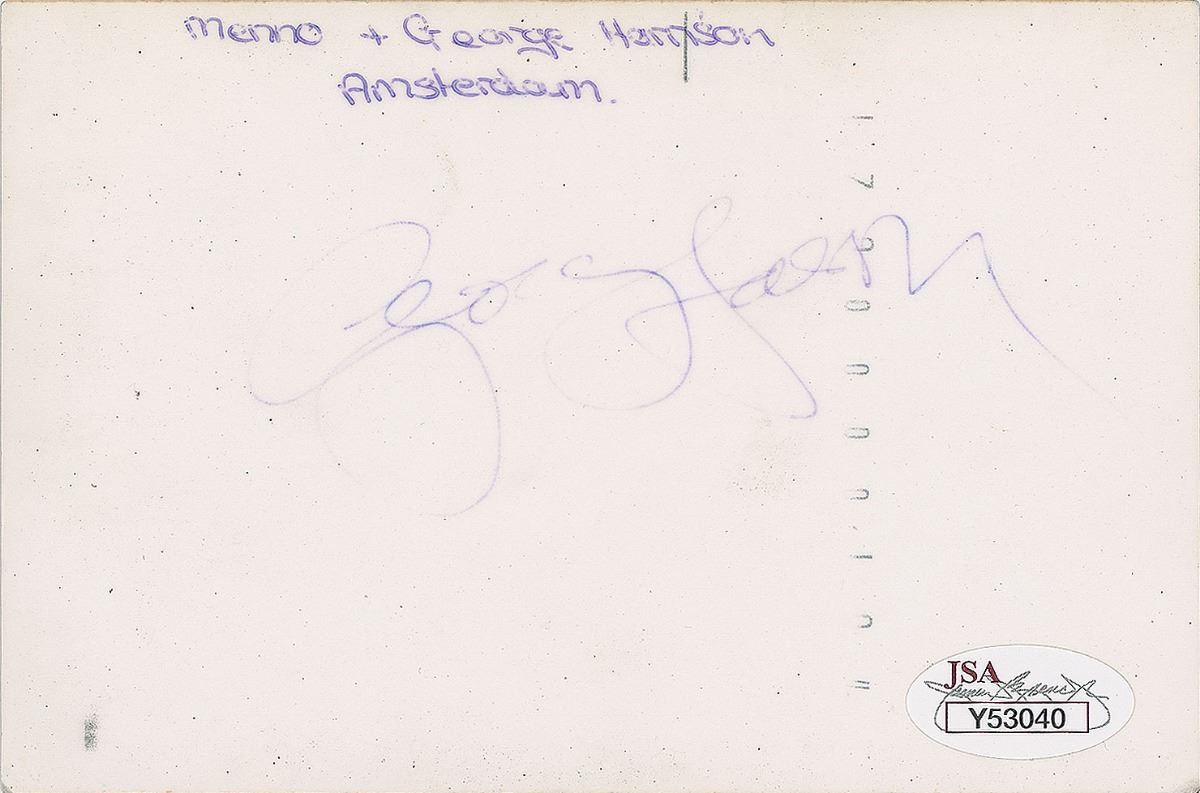 Menno + George Harrison
Amsterdam.
George Harrison
JSA
Y53040